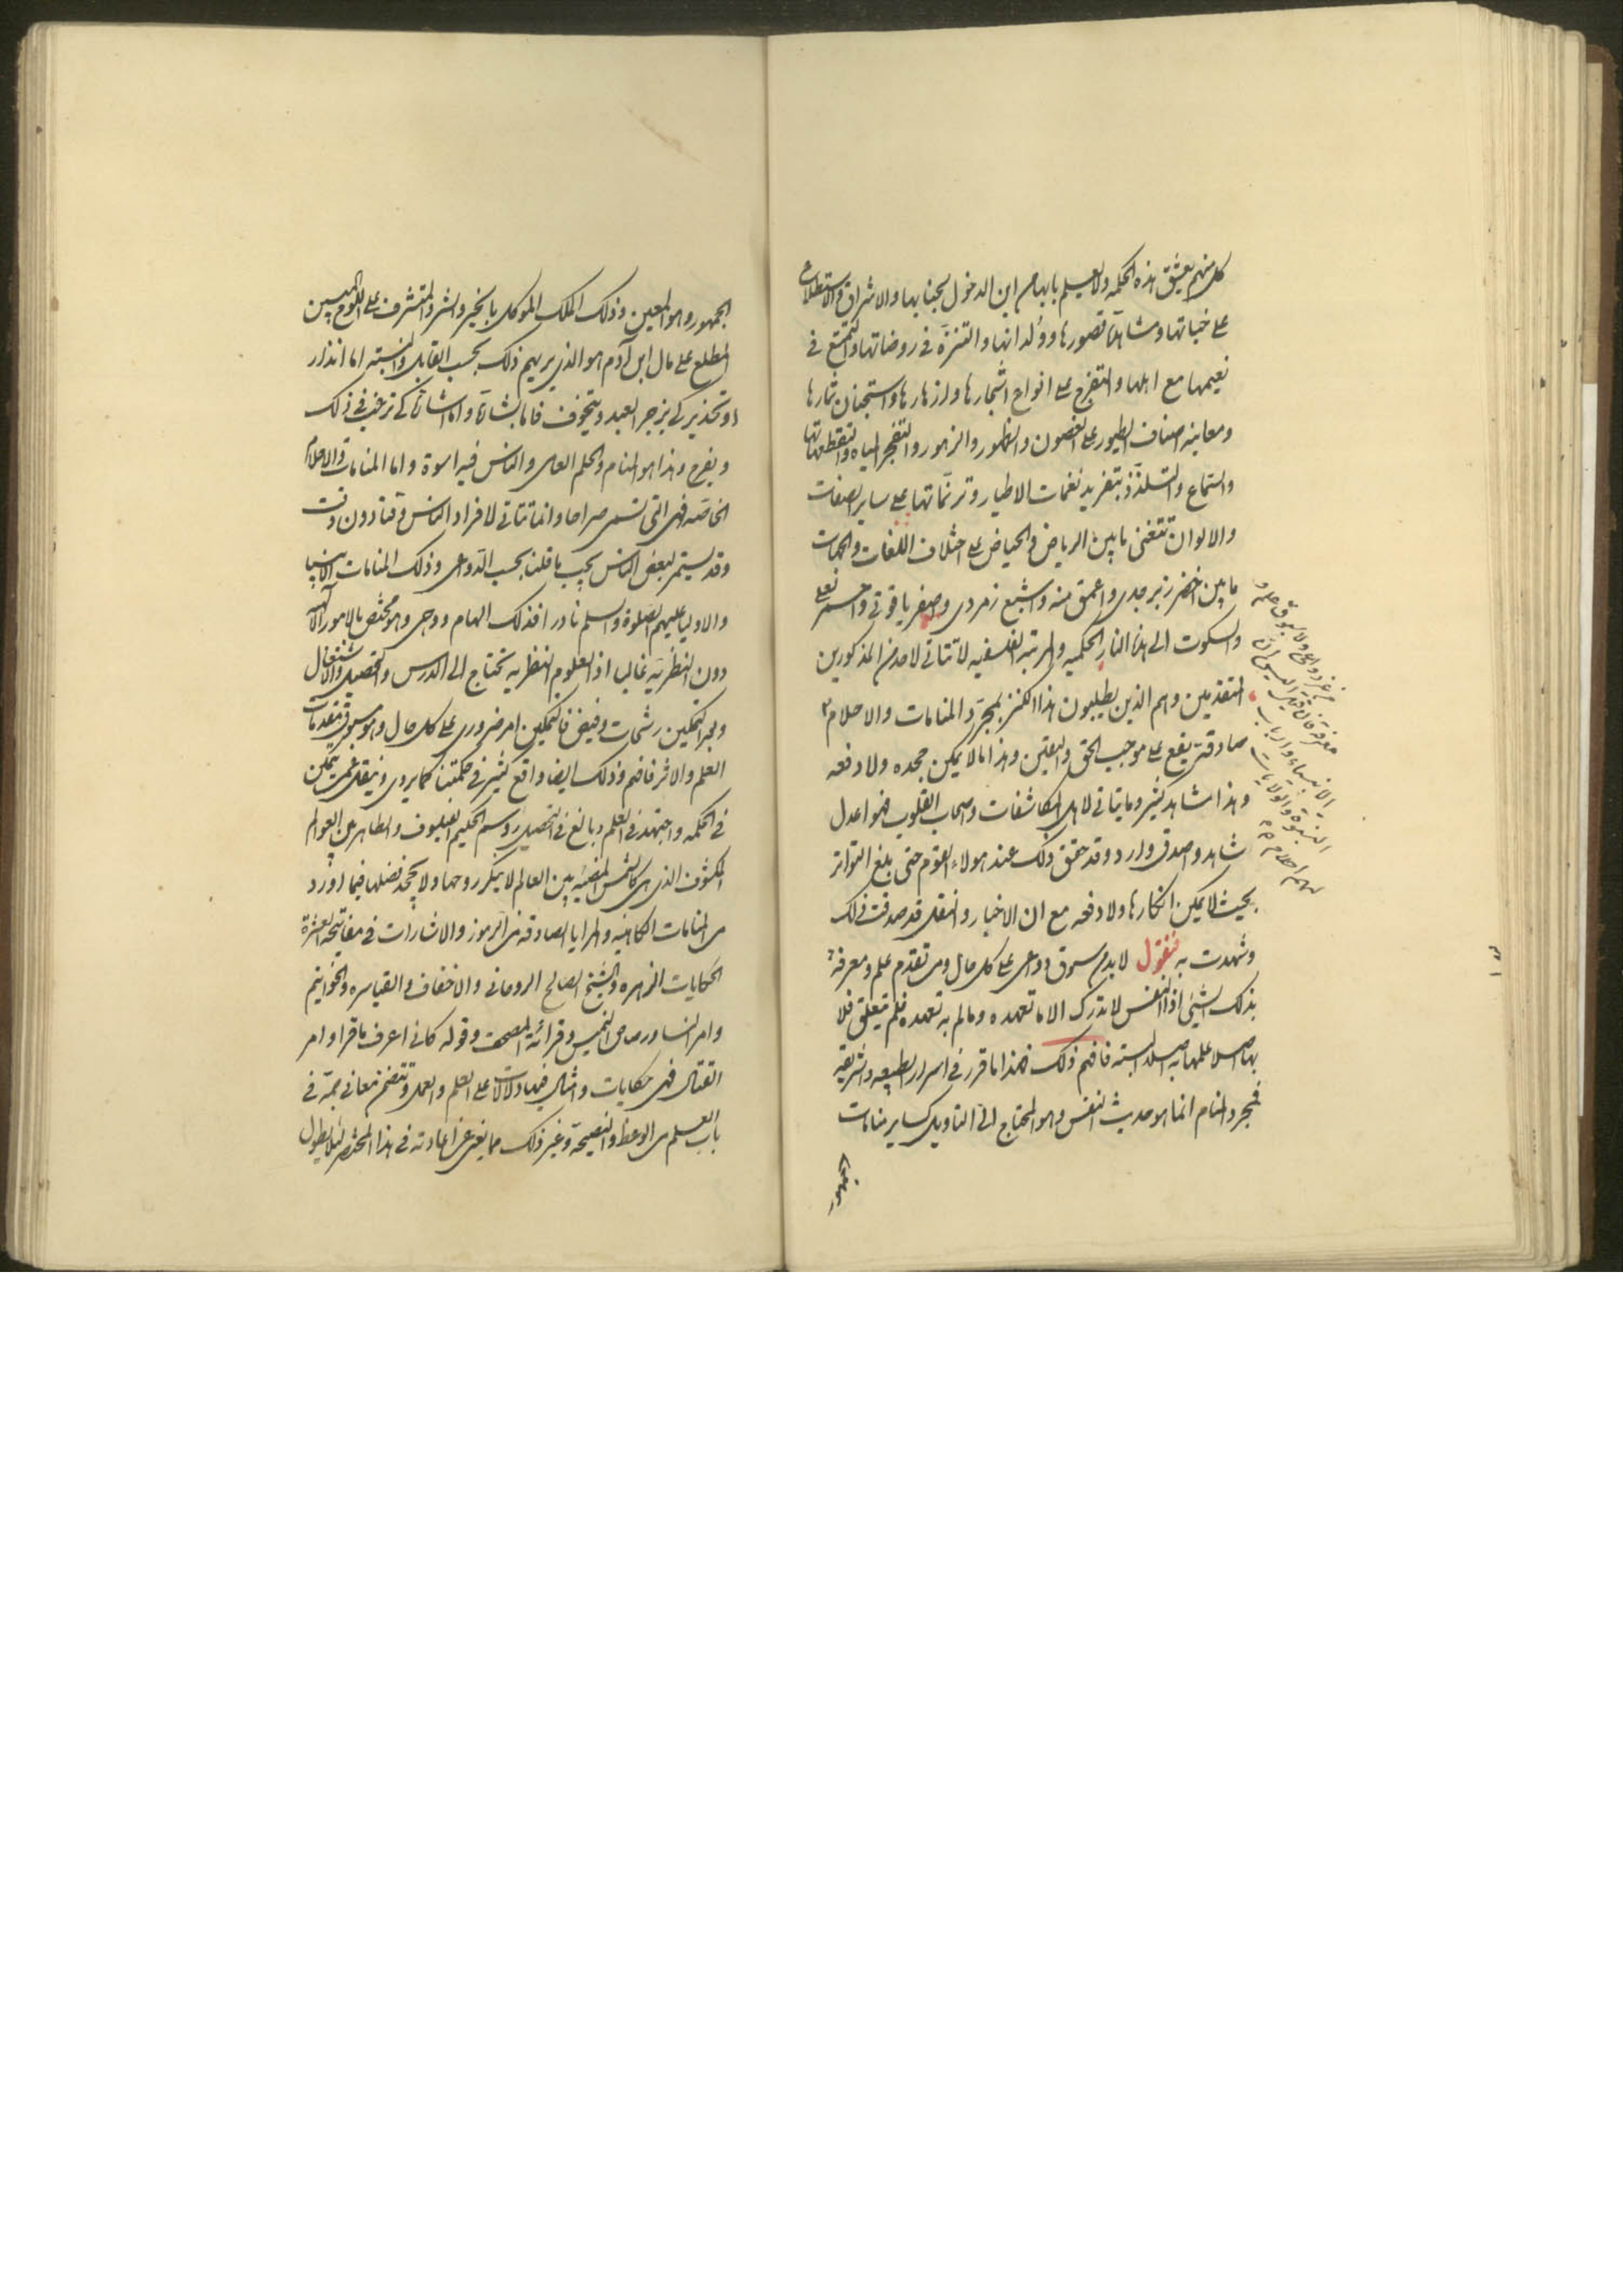 كل منهم يعشق هذه الحكمة ولا يعلم بابها من اين الدخول لجنابها والاشراق والاستطلاع
على خباتها ومشاهدة قصورها وولدانها والتنزه في روضاتها والتمتع في
نعيمها مع اهلها والتفرج على انواع اشجارها وازهارها واستجنان ثمارها
ومعاينة اصناف الطيور على الغصون والظهور والزهور والتفجر المياه
والستماع والتسلذذ بتغريد نغمات الاطيار وترنماتها على ساير الصفات
والالوان تتغنى ما بين الرياض والحياض على اختلاف اللغات والجهات
ما بين اخضر زبرجدي واعمق منه واشبع زمردي واصفر ياقوتي واحمر
والسكوت الى هذا النار الحكمية والمرتبة الفلسفية لا تتاتى لاحد من المذكورين
المتقدمين وهم الذين يطلبون هذا الكنز بمجرد المنامات والاحلام
صادقة يقع على موجب الحق واليقين وهذا ما لا يمكن جحده ولا دفعه
وهذا مشاهد كثير وما يتاتى لاهل المكاشفات واصحاب القلوب فهو اعدل
شاهد واصدق وارد وقد حقق ذلك عند هولاء القوم حتى بلغ التواتر
بحيث لا يمكن انكارها ولا دفعه مع ان الاخبار والنقل قد صدقت ذلك
وشهدت به فنقول لابد من سبوق دواعى على كل حال ومن تقدم علم ومعرفة
بذلك الشيئ اذ النفس لا تدرك الا ما تعهده وما لم به تعهده فلم يتعلق فلا
بها صلا علمها به صلا البتة فافهم ذلك فهذا ما قرر في اسرار الطبيعة والشريعة
فمجرد المنام انما هو حديث النفس وهو المحتاج الى التاويل كساير منامات
الجمهور
من غير دواعى ولا سبوق علم و
معرفة فان قيل
الانبياء وارباب
النبوة والولايات
لهم احلام
الجمهور وهو المعين وذلك الملك الموكل بالخير والشر والمتشرف على اللوح المبين
المطلع على مال ابن آدم هو الذي يريهم ذلك بحسب القابل والنسبة اما انذار
او تحذير كي يزجر العبد ويتخوف فاما بشارة واما اشارة كي ترغب في ذلك
ويفرح وهذا هو المنام والحلم العام والناس فيه اسوة واما المنامات والاحلام
الخاصة فهى التى تسمى صراحا وانما تتاتى لافراد الناس وقتا دون وقت
وقد يستمر لبعض الناس بحسب ما قلنا بحسب الدواعى وذلك المنامات الانبيا
والاوليا عليهم الصلوة والسلم نادر افذلك الهام ووحى وهو مختص بالامور الآلهية
دون النظرية غالبا اذ العلوم النظرية تحتاج الى الدرس والتحصيل والاشتغال
وبعد التمكين رشحات وفيض فالتمكين امر ضرورى على كل حال وهو مسبوق بتقدمات
العلم والاثر فافهم وذلك ايضا واقع كثير في حكمتنا كما يروى وينقل عمن يتمكن
في الحكمة واجتهد في العلم وبالغ في التحصيل ورسم الحكيم الفيلسوف والظاهر من العوالم
المكشوف الذى هى كالشمس المضيئة بين العالم لا ينكر روحها ولا يجحد فضلها فيما اورد
من المنامات الكاهنية والمرايا الصادقة من الرموز والاشارات في مفاتيحه العشرة
الحكايات الزهره والشيخ الصالح الروحانى والاخفاف والقياسره والخواتيم
وامر النساور صاحب القميس وقرائة المصحف وقوله كانى اعرف ما قرا وامر
القتال فهى حكايات وامثال فيها دلالات على العلم والعمل وتتضمن معانى جمة في
باب العلم من الوعظ والنصيحة وغير ذلك مما يغنى عن اعادته في هذا المختصر لئلا يطول